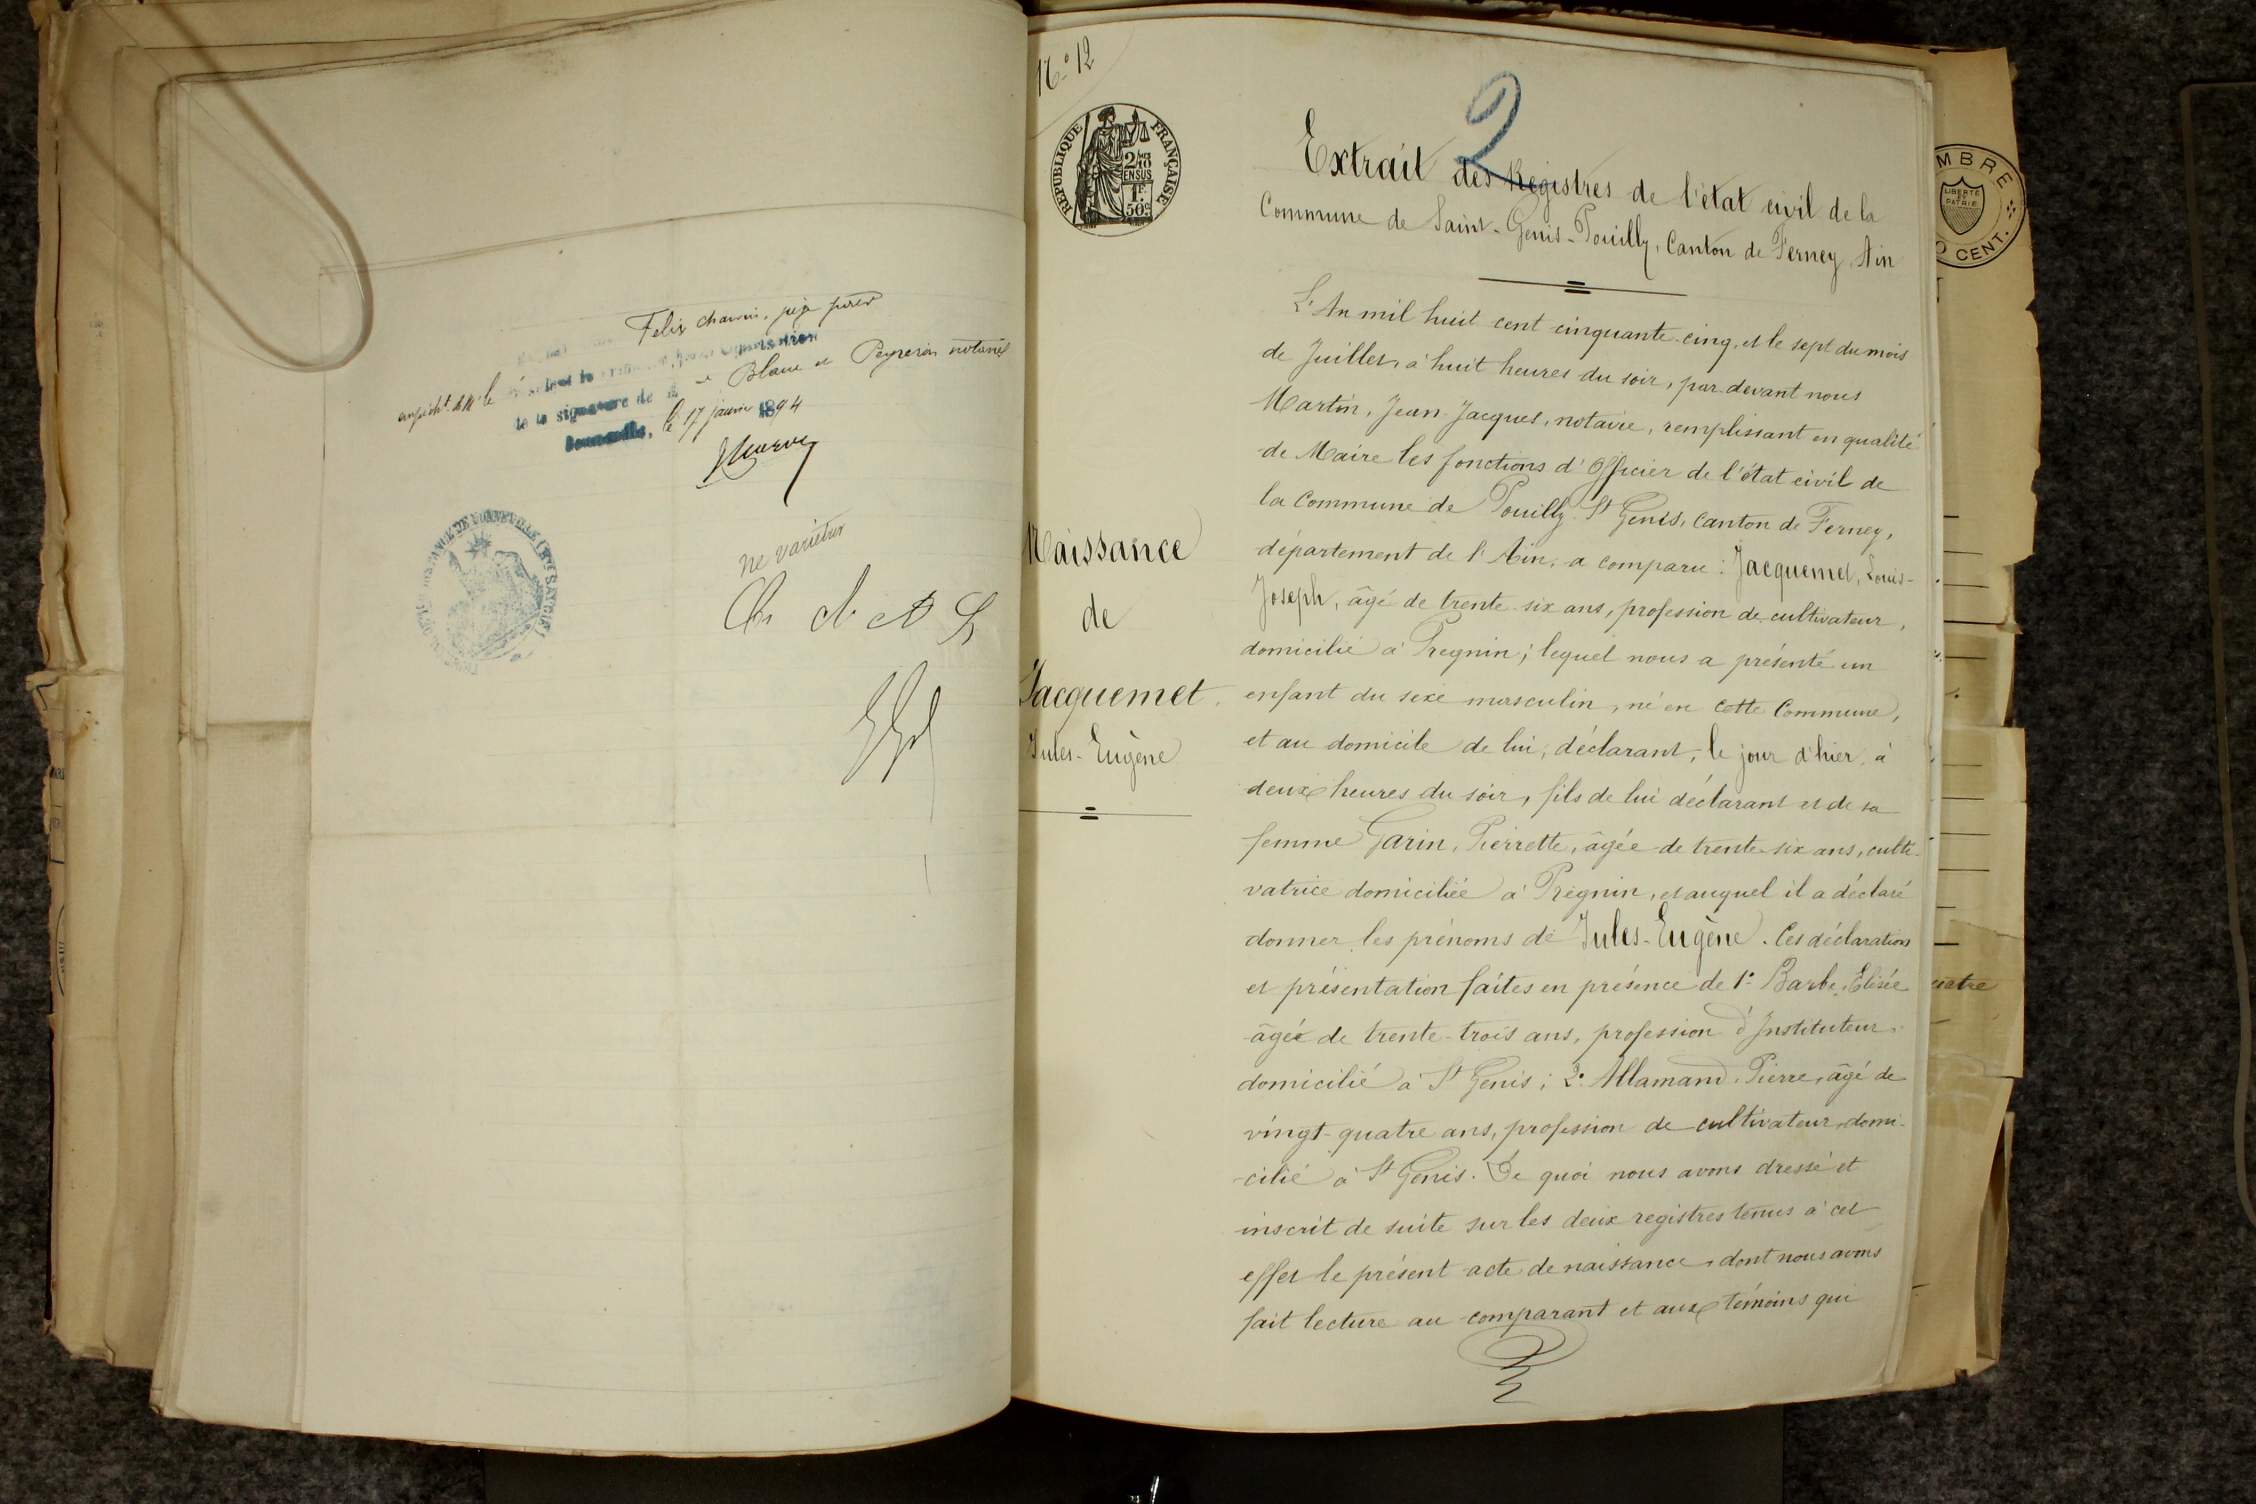 Felix
Blanc et Peyneron notaires
de la signature de M
Bonneville, le 17 janvier 1894
ne varietur
N.o 12
RÉPUBLIQUE FRANÇAISE
2/10
EN SUS
1F.
50c
2
Extrait des Registres de l'état civil de la
Commune de Saint-Genis-Pouilly, Canton de Ferney, Ain
Naissance
de
Jacquemet
Jules-Eugène
L'An mil huit cent cinquante-cinq, et le sept du mois
de Juillet, à huit heures du soir, par devant nous
Martin, Jean-Jacques, notaire, remplissant en qualité
de Maire les fonctions d'Officier de l'état civil de
la Commune de Pouilly St Genis, Canton de Ferney,
département de l'Ain, a comparu : Jacquemet, Louis-
Joseph, âgé de trente-six ans, profession de cultivateur,
domicilié à Pregnin ; lequel nous a présenté un
enfant du sexe masculin, né en cette Commune,
et au domicile de lui, déclarant, le jour d'hier, à
deux heures du soir, fils de lui déclarant et de sa
femme Garin, Pierrette, âgée de trente-six ans, culti-
vatrice domiciliée à Prégnin, et auquel il a déclaré
donner les prénoms de Jules-Eugène. Ces déclarations
et présentation faites en présence de 1° Barbe, Elisée
âgée de trente-trois ans, profession d'Instituteur
domicilié à St Genis ; 2° Allamand, Pierre, âgé de
vingt-quatre ans, profession de cultivateur, domi-
cilié à St Genis. De quoi nous avons dressé et
inscrit de suite sur les deux registres tenus à cet
effet le présent acte de naissance, dont nous avons
fait lecture au comparant et aux témoins qui
MBRE
LIBERTÉ
ET
PATRIE
0 CENT.